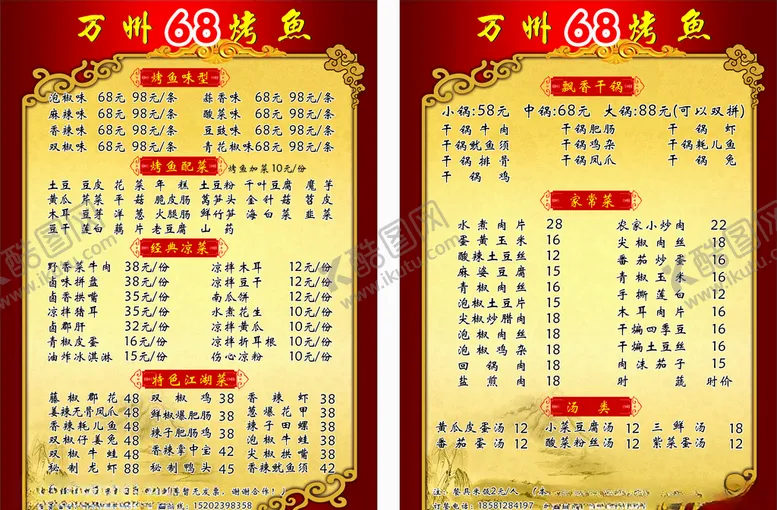 万州68烤鱼
烤鱼味型
泡椒味 68元 98元/条 蒜香味 68元 98元/条
麻辣味 68元 98元/条 酸菜味 68元 98元/条
香辣味 68元 98元/条 豆豉味 68元 98元/条
双椒味 68元 98元/条 青花椒味 68元 98元/条
烤鱼配菜 烤鱼加菜10元/份
土豆 豆皮 花菜 年糕 土豆粉 千叶豆腐 魔芋
黄瓜 芹菜 平菇 脆皮肠 莴笋头 金针菇 苕皮
木耳 豆芽 洋葱 火腿肠 鲜竹笋 海白菜 韭菜
豆干 莲白 藕片 老豆腐 山药
经典凉菜
野香菜牛肉 38元/份 凉拌木耳 12元/份
卤味拼盘 38元/份 凉拌豆干 12元/份
卤香拱嘴 35元/份 南瓜饼 12元/份
凉拌猪耳 35元/份 水煮花生 10元/份
卤郡肝 32元/份 凉拌黄瓜 10元/份
青椒皮蛋 16元/份 凉拌折耳根 10元/份
油炸冰淇淋 15元/份 伤心凉粉 10元/份
特色江湖菜
藤椒郡花 48 双椒鸡 38 香辣虾 38
姜辣无骨凤爪 48 鲜椒爆肥肠 38 葱爆花甲 38
香辣耗儿鱼 48 辣子肥肠鸡 38 辣子田螺 38
双椒仔姜兔 48 香辣掌中宝 42 泡椒牛蛙 38
双椒牛蛙 48 香辣牛蛙 38
秘制龙虾 88 秘制鸭头 45 香辣鱿鱼须 42
暂无发票，谢谢合作！）
15202398358
万州68烤鱼
飘香干锅
小锅:58元 中锅:68元 大锅:88元(可以双拼)
干锅牛肉 干锅肥肠 干锅虾
干锅鱿鱼须 干锅鸡杂 干锅耗儿鱼
干锅排骨 干锅凤爪 干锅兔
干锅鸡
家常菜
水煮肉片 28 农家小炒肉 22
蛋黄玉米 16 尖椒肉丝 18
酸辣土豆丝 12 番茄炒蛋 16
麻婆豆腐 15 青椒玉米 16
泡椒土豆片 15 手撕莲白 12
尖椒炒腊肉 18 木耳肉片 16
泡椒肉丝 18 干煸四季豆 16
泡椒鸡杂 18 干煸土豆丝 16
回锅肉 18 肉沫茄子 15
盐煎肉 18 时蔬 时价
汤类
黄瓜皮蛋汤 12 小菜豆腐汤 12 三鲜汤 18
番茄蛋汤 12 酸菜粉丝汤 12 紫菜蛋汤 12
注：餐具米饭2元/人
订餐电话：18581284197
酷图网
www.ikutu.com